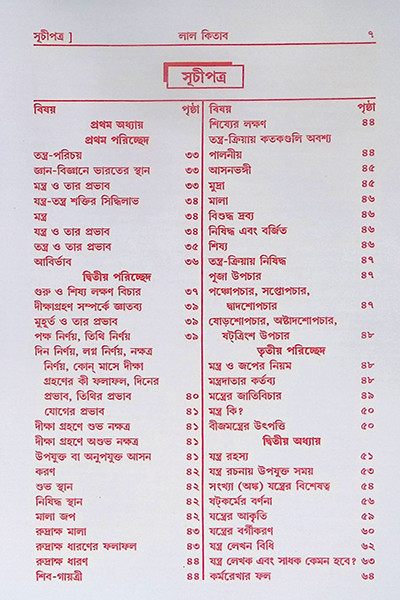 সূচীপত্র ] লাল কিতাব ৭
সূচীপত্র
বিষয় পৃষ্ঠা
প্রথম অধ্যায়
প্রথম পরিচ্ছেদ
তন্ত্র-পরিচয় ৩৩
জ্ঞান-বিজ্ঞানে ভারতের স্থান ৩৩
মন্ত্র ও তার প্রভাব ৩৩
যন্ত্র-তন্ত্র শক্তির সিদ্ধিলাভ ৩৪
মন্ত্র ৩৪
যন্ত্র ও তার প্রভাব ৩৪
তন্ত্র ও তার প্রভাব ৩৫
আবির্ভাব ৩৬
দ্বিতীয় পরিচ্ছেদ
গুরু ও শিষ্য লক্ষণ বিচার ৩৭
দীক্ষাগ্রহণ সম্পর্কে জ্ঞাতব্য ৩৯
মুহূর্ত ও তার প্রভাব ৩৯
পক্ষ নির্ণয়, তিথি নির্ণয় ৩৯
দিন নির্ণয়, লগ্ন নির্ণয়, নক্ষত্র
নির্ণয়, কোন্ মাসে দীক্ষা
গ্রহণের কী ফলাফল, দিনের
প্রভাব, তিথির প্রভাব ৪০
যোগের প্রভাব ৪১
দীক্ষা গ্রহণে শুভ নক্ষত্র ৪১
দীক্ষা গ্রহণে অশুভ নক্ষত্র ৪১
উপযুক্ত বা অনুপযুক্ত আসন ৪১
করণ ৪২
শুভ স্থান ৪২
নিষিদ্ধ স্থান ৪২
মালা জপ ৪২
রুদ্রাক্ষ মালা ৪৩
রুদ্রাক্ষ ধারণের ফলাফল ৪৩
রুদ্রাক্ষ ধারণ ৪৪
শিব-গায়ত্রী ৪৪
বিষয় পৃষ্ঠা
শিষ্যের লক্ষণ ৪৪
তন্ত্র-ক্রিয়ায় কতকগুলি অবশ্য
পালনীয় ৪৪
আসনভঙ্গী ৪৫
মুদ্রা ৪৫
মালা ৪৬
বিশুদ্ধ দ্রব্য ৪৬
নিষিদ্ধ এবং বর্জিত ৪৬
শিষ্য ৪৬
তন্ত্র-ক্রিয়ায় নিষিদ্ধ ৪৭
পূজা উপচার ৪৭
পঞ্চোপচার, সপ্তোপচার,
দ্বাদশোপচার ৪৭
ষোড়শোপচার, অষ্টাদশোপচার,
ষট্‌ত্রিংশ উপচার ৪৮
তৃতীয় পরিচ্ছেদ
মন্ত্র ও জপের নিয়ম ৪৮
মন্ত্রদাতার কর্তব্য ৪৮
মন্ত্রের জাতিবিচার ৪৯
মন্ত্র কি? ৫০
বীজমন্ত্রের উৎপত্তি ৫০
দ্বিতীয় অধ্যায়
যন্ত্র রহস্য ৫১
যন্ত্র রচনায় উপযুক্ত সময় ৫৩
সংখ্যা (অঙ্ক) যন্ত্রের বিশেষত্ব ৫৪
ষট্‌কর্মের বর্ণনা ৫৬
যন্ত্রের আকৃতি ৫৯
যন্ত্রের বর্গীকরণ ৬০
যন্ত্র লেখন বিধি ৬২
যন্ত্র লেখক এবং সাধক কেমন হবে? ৬৩
কর্মরেখার ফল ৬৪